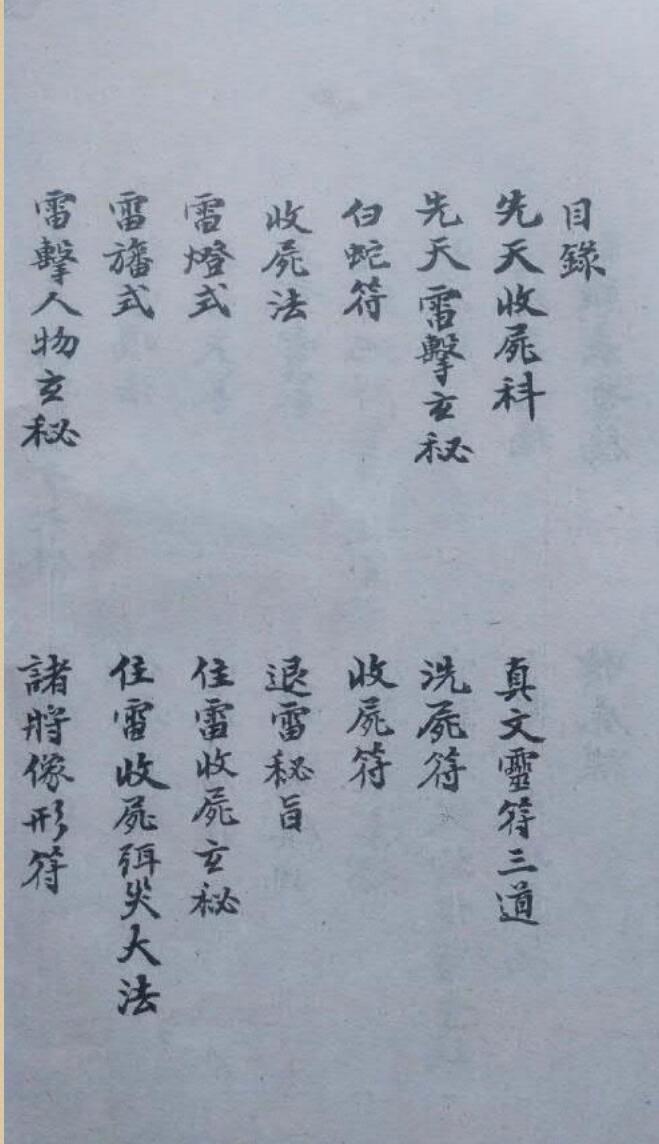 目錄
先天收屍科
真文靈符三道
先天雷擊玄秘
洗屍符
白蛇符
收屍符
收屍法
退雷秘旨
雷燈式
住雷收屍玄秘
雷旛式
住雷收屍弭災大法
雷擊人物玄秘
諸將像形符